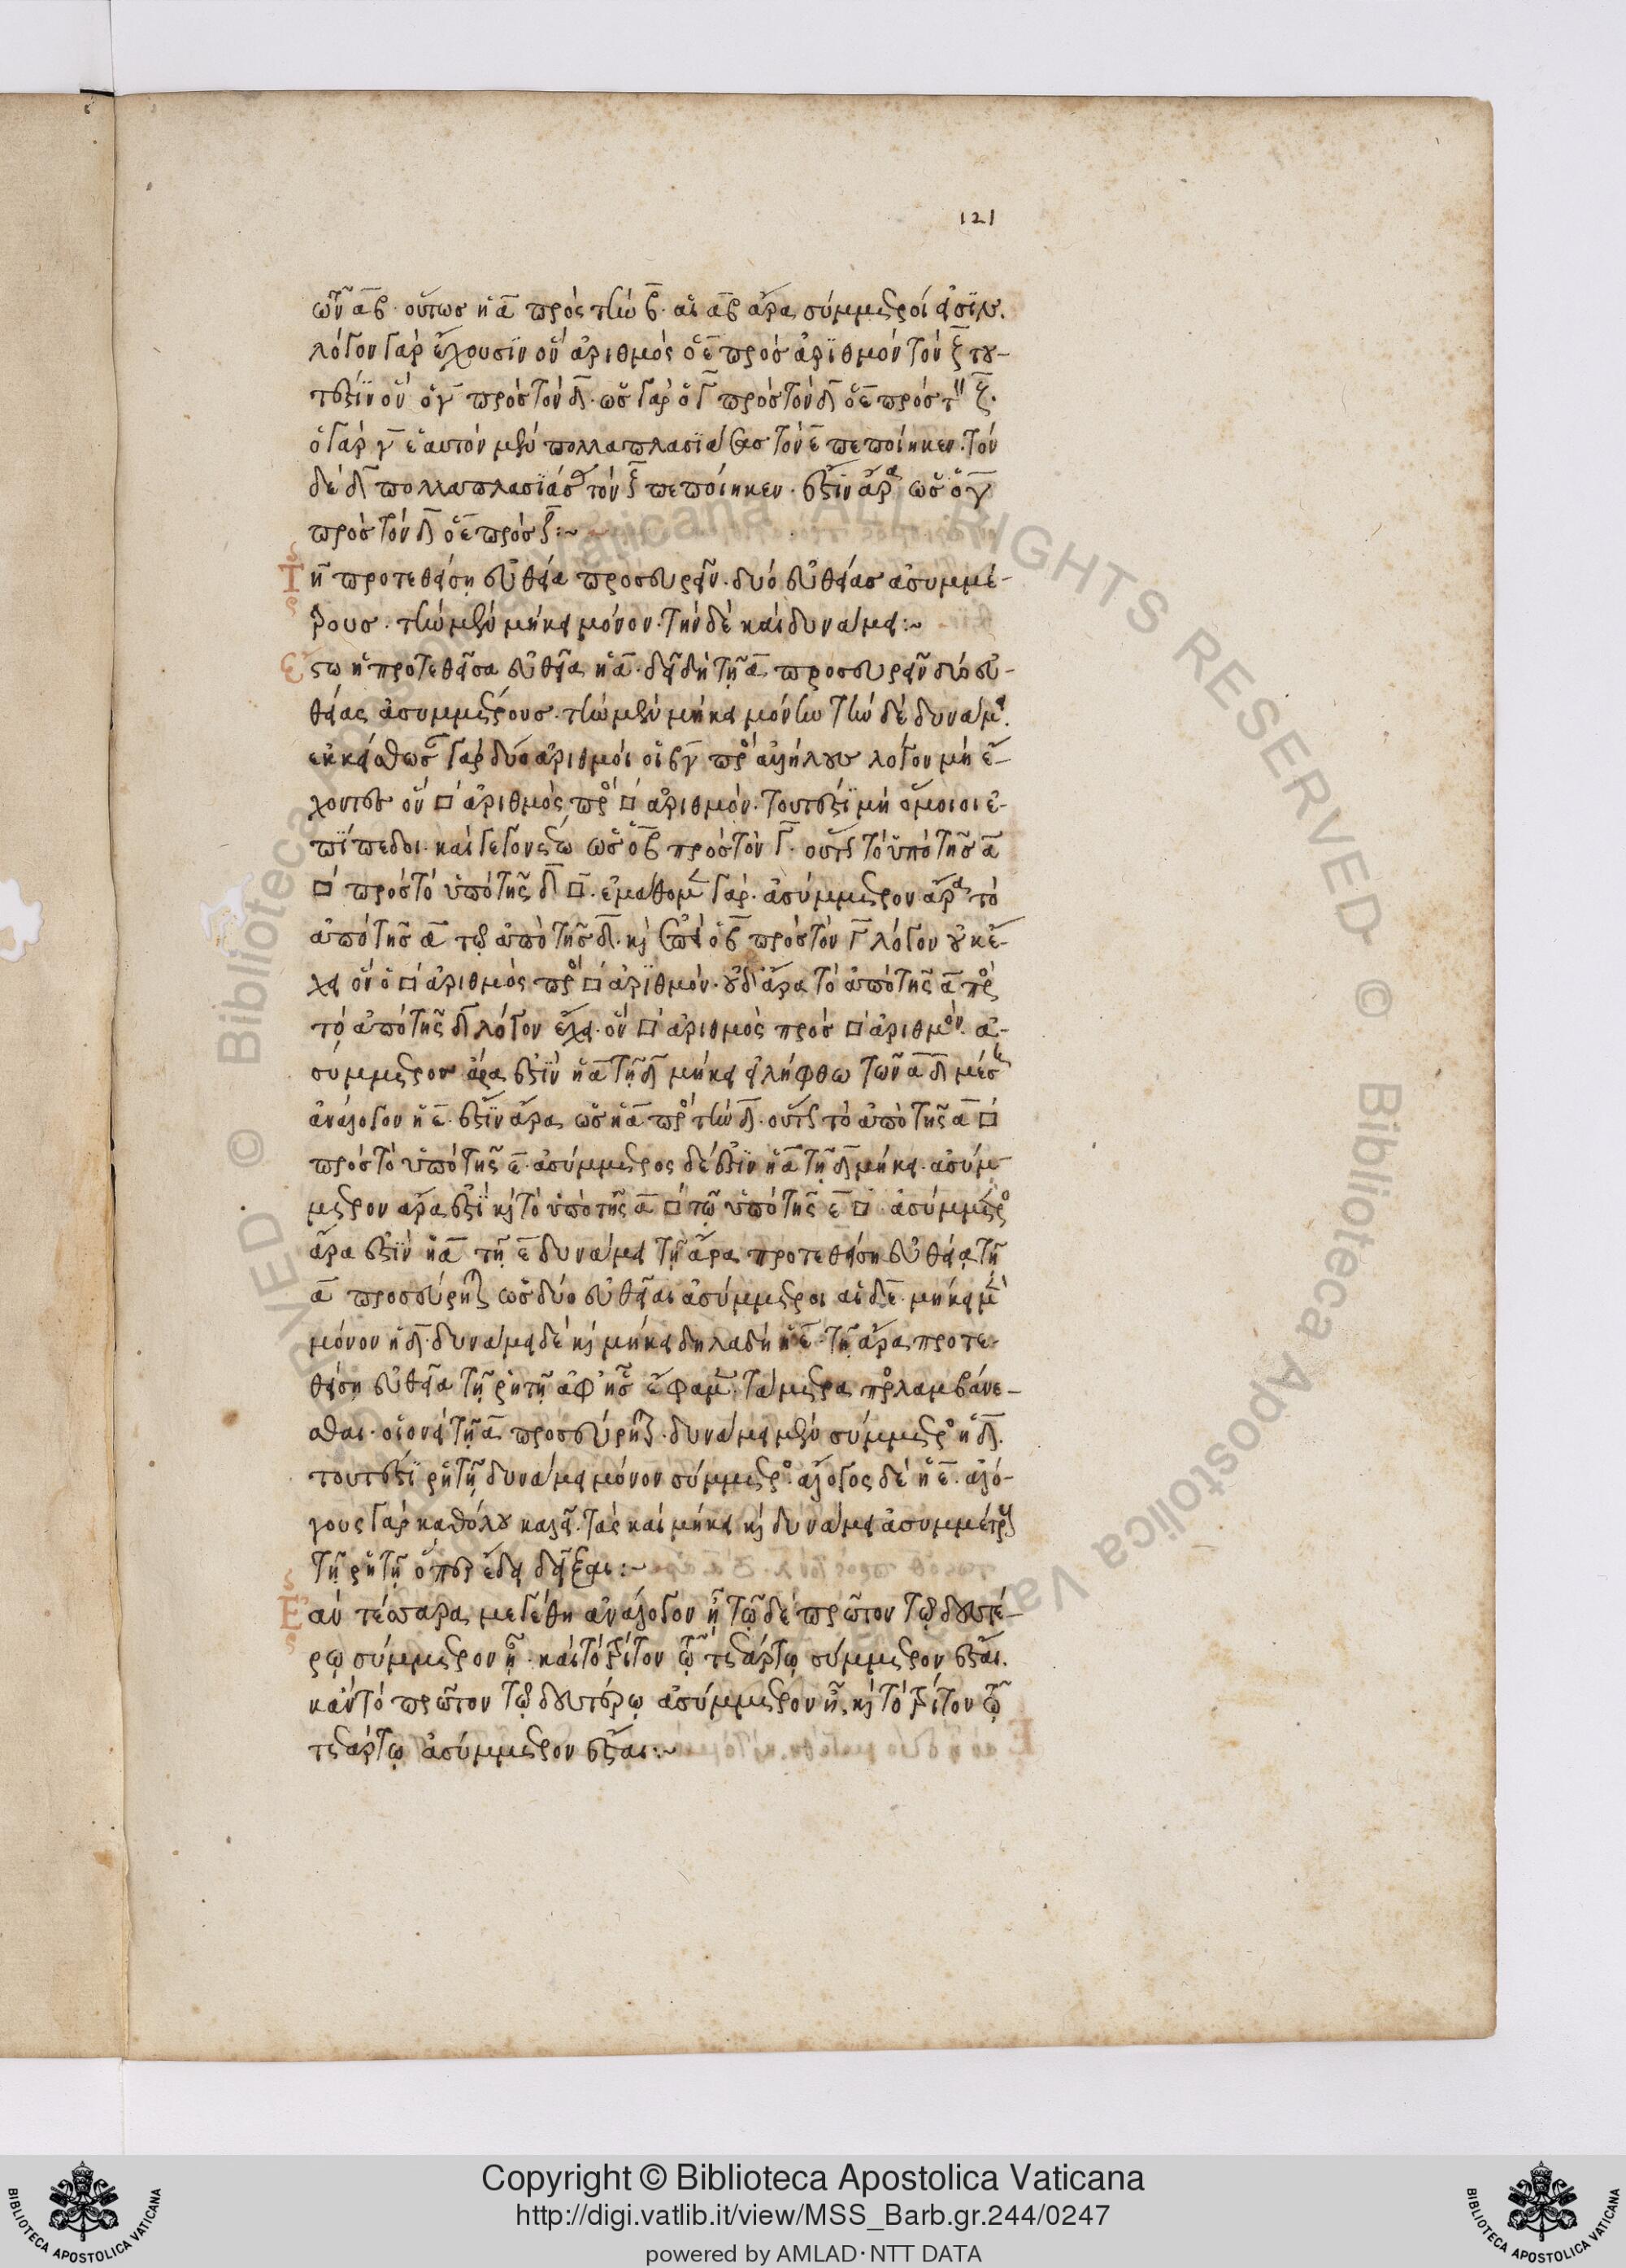 121
ῶν α β. οὕτως ἡ α πρὸς τὴν β. αἱ α β ἄρα σύμμετροί εἰσιν.
λόγον γὰρ ἔχουσιν ὃν ἀριθμὸς ὁ ε πρὸς ἀριθμὸν τὸν ζ του-
τέστιν ὃν ὁ γ πρὸς τὸν δ. ὡς γὰρ ὁ γ πρὸς τὸν δ ὁ ε πρὸς τ ζ.
ὁ γὰρ γ ἑαυτὸν μὲν πολλαπλασιάσας τὸν ε πεποίηκεν. τὸν
δὲ δ πολλαπλασιάσ τὸν ζ πεποίηκεν. ἔστιν ἄρα ὡς ὁ γ
πρὸς τὸν δ ὁ ε πρὸς ζ:~
Τῆ προτεθείση εὐθεία προσευρεῖν. δύο εὐθείας ἀσυμμέ-
τρους. τὴν μὲν μήκει μόνον. τὴν δὲ καὶ δυνάμει:~
Ἔστω ἡ προτεθεῖσα εὐθεῖα ἡ α. δεῖ δὴ τῆ α προσευρεῖν δύο εὐ-
θείας ἀσυμμέτρους. τὴν μὲν μήκει μόνην τὴν δὲ δυνάμει.
ἐκκείσθωσ γὰρ δύο ἀριθμοὶ οἱ β γ πρὸς ἀλλήλους λόγον μὴ ἔ-
χοντες ὃν □ ἀριθμὸς πρὸς □ ἀριθμόν. τουτέστι μὴ ὅμοιοι ἐ-
πίπεδοι. καὶ γεγονέτω ὡς ὁ β πρὸς τὸν γ. οὕτως τὸ ὑπὸ τῆς α
□ πρὸς τὸ ὑπὸ τῆς δ □. ἐμάθομεν γάρ. ἀσύμμετρον ἄρα τὸ
ἀπὸ τῆς α τῶ ἀπὸ τῆς δ. κὶ ἐπεὶ ὁ β πρὸς τὸν γ λόγον οὐκ ἔ-
χει ὃν ὁ □ ἀριθμὸς πρὸς □ ἀριθμόν. οὐδ' ἄρα τὸ ἀπὸ τῆς α πρὸς
τὸ ἀπὸ τῆς δ λόγον ἔχει. ὃν □ ἀριθμὸς πρὸς □ ἀριθμόν. ἀ-
σύμμετρον ἄρα ἐστὶν ἡ α τῆ δ μήκει εἰλήφθω τῶν α δ μέση
ἀνάλογον ἡ ε. ἔστιν ἄρα ὡς ἡ α πρὸς τὴν δ. οὕτως τὸ ἀπὸ τῆς α □
πρὸς τὸ ὑπὸ τῆς ε. ἀσύμμετρος δέ ἐστιν ἡ α τῆ δ μήκει. ἀσύμ-
μετρον ἄρα ἐστὶ κὶ τὸ ὑπὸ τῆς α □ τῶ ὑπὸ τῆς ε □ ἀσύμμετρος
ἄρα ἐστὶν ἡ α τῆ ε δυνάμει τῆ ἄρα προτεθείση εὐθεία τῆ
α προσεύρην ὡς δύο εὐθεῖαι ἀσύμμετροι αἱ δ ε. μήκει μὲν
μόνον ἡ δ. δυνάμει δὲ κὶ μήκει δηλαδὴ ἡ ε. τῆ ἄρα προτε-
θείση εὐθεία τῆ ῥητῆ ἀφ' ἧς ἔφαμεν. τὰ μέτρα προλαμβάνε-
σθαι. οἱονεὶ τῆ α προσεύρην. δυνάμει μὲν σύμμετρος ἡ δ.
τουτέστι ῥητῆ δυνάμει μόνον σύμμετρος. ἄλογος δὲ ἡ ε. ἀλό-
γους γὰρ καθόλου καλεῖ. τὰς καὶ μήκει κὶ δυνάμει ἀσυμμέτρους
τῆ ῥητῆ ὅπερ ἔδει δεῖξαι:~
Ἐὰν τέσσαρα μεγέθη ἀνάλογον ᾖ τῶ δὲ πρῶτον τῶ δευτέ-
ρω σύμμετρον ᾖ. καὶ τὸ τρίτον τῶ τετάρτω σύμμετρον ἔσται.
κἂν τὸ πρῶτον τῶ δευτέρω ἀσύμμετρον ᾖ, κὶ τὸ τρίτον τῶ
τετάρτω ἀσύμμετρον ἔσται:~
Copyright © Biblioteca Apostolica Vaticana
http://digi.vatlib.it/view/MSS_Barb.gr.244/0247
powered by AMLAD·NTT DATA